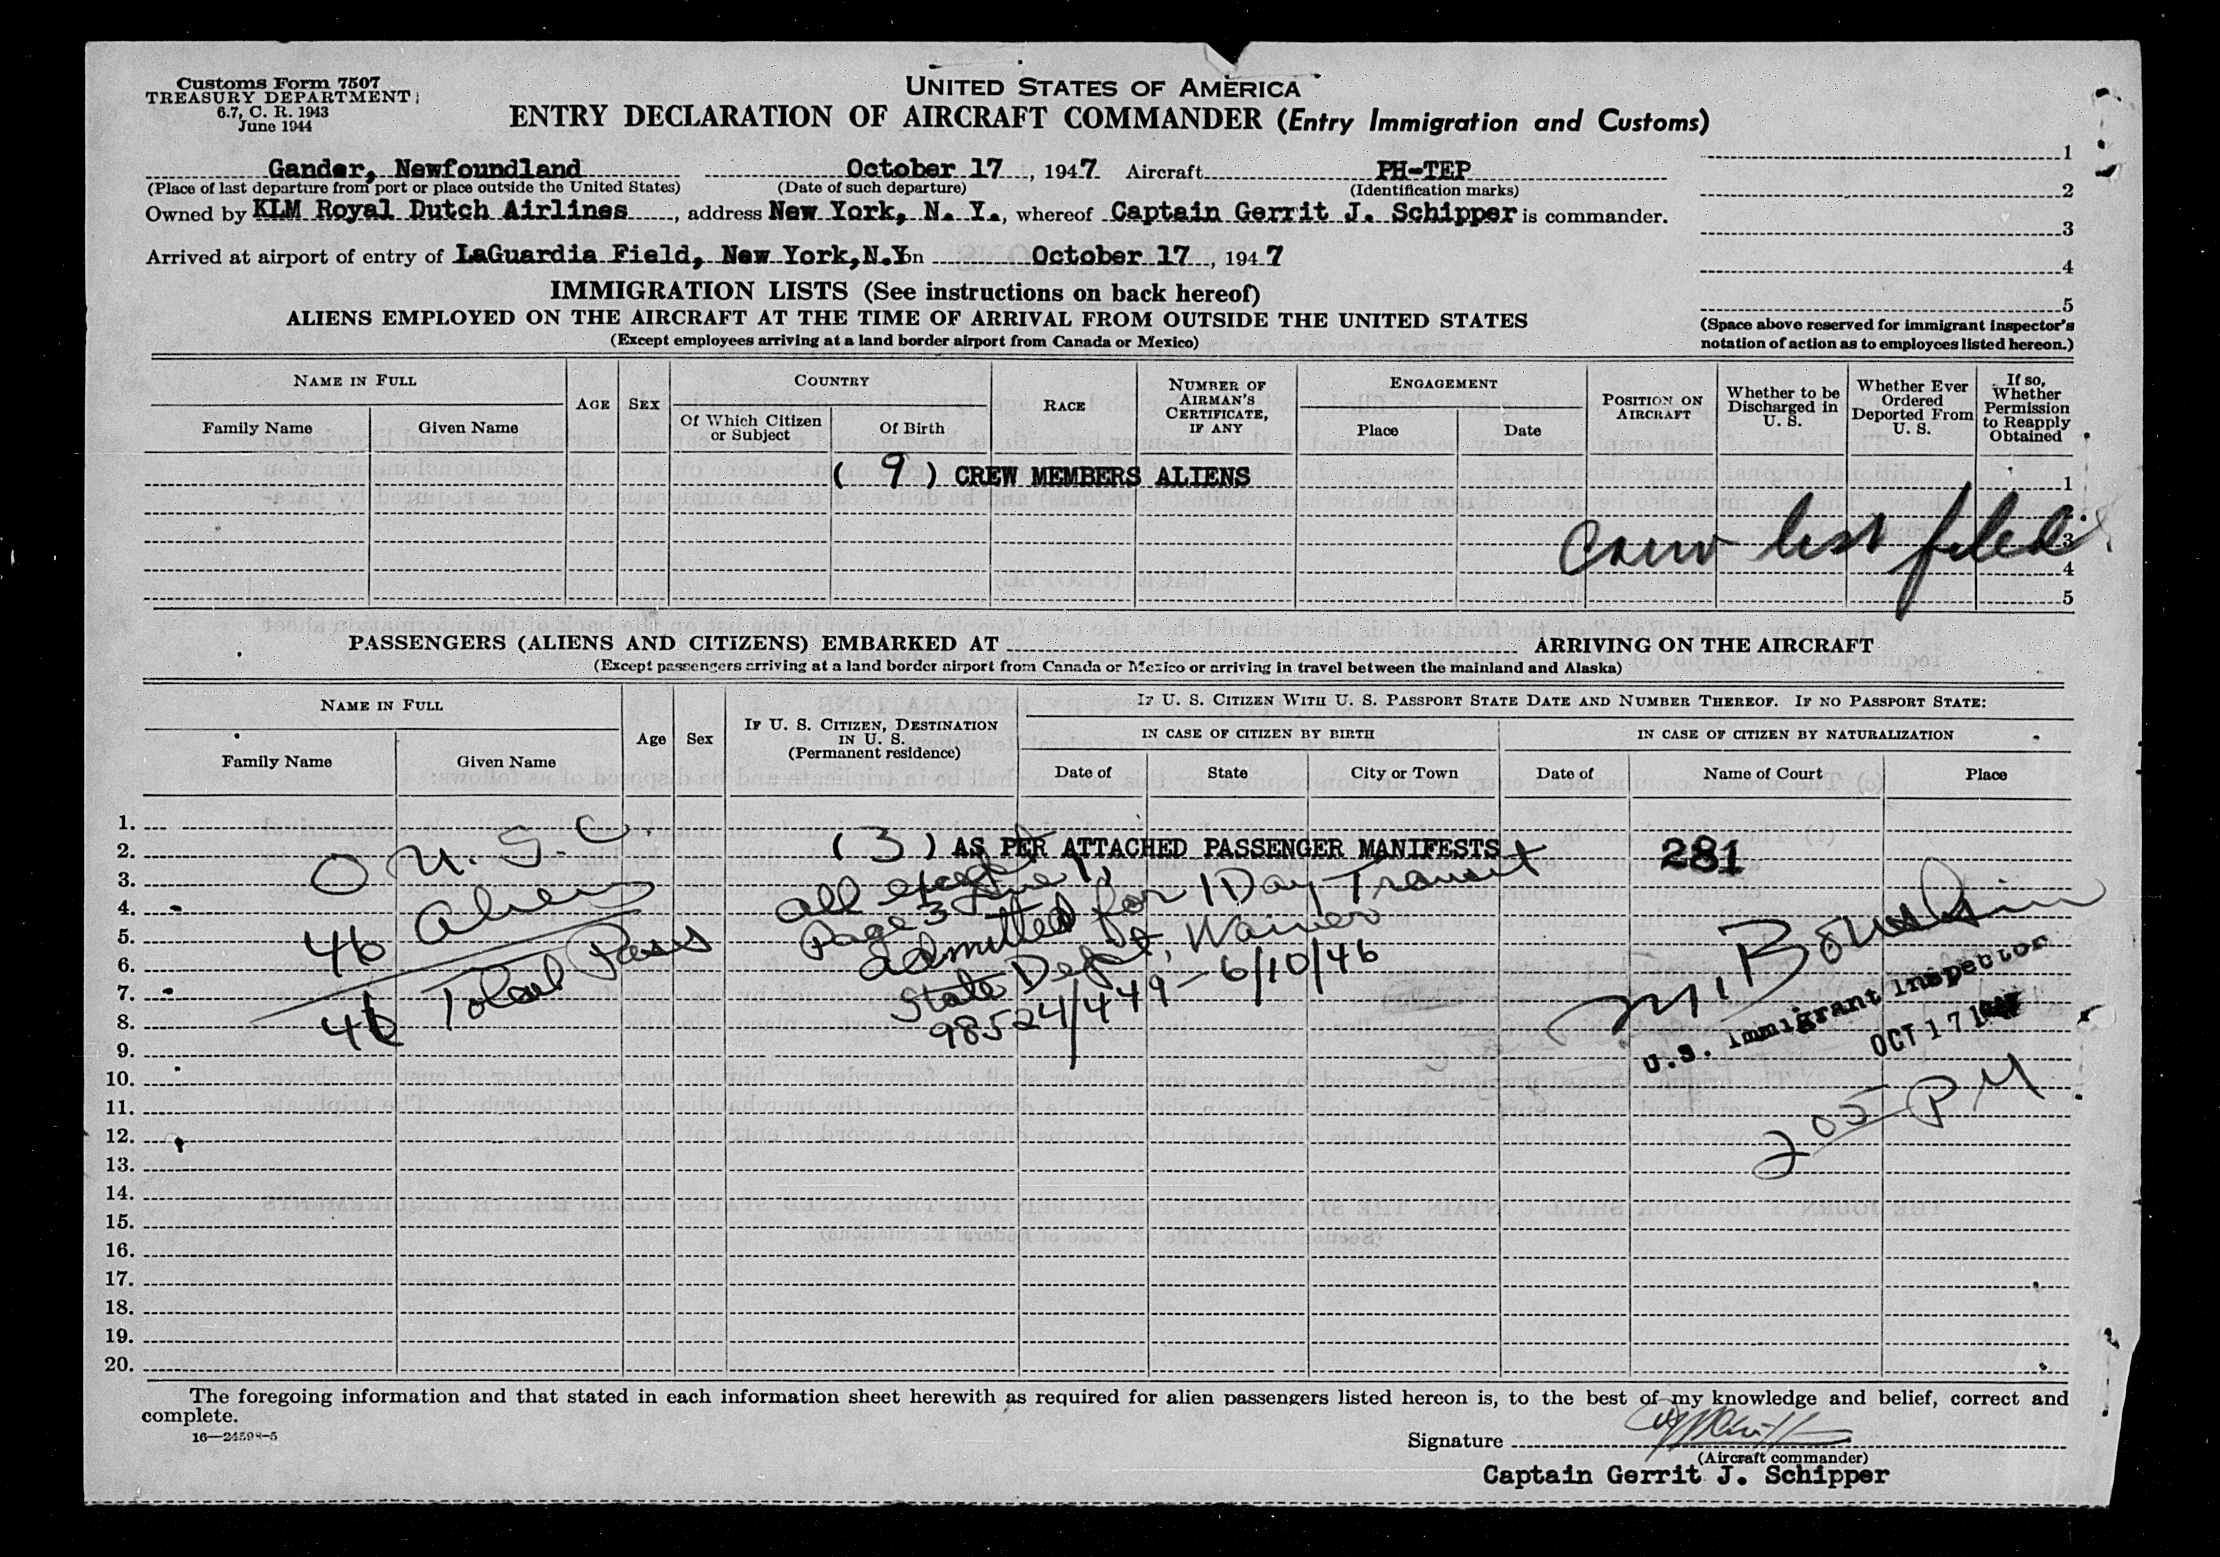 Customs Form 7507
TREASURY DEPARTMENT
6.7, C. R. 1943
June 1944
UNITED STATES OF AMERICA
ENTRY DECLARATION OF AIRCRAFT COMMANDER (Entry Immigration and Customs)
Gander, Newfoundland October 17, 1947 Aircraft PH-TEP
(Place of last departure from port or place outside the United States) (Date of such departure) (Identification marks)
Owned by KLM Royal Dutch Airlines, address New York, N. Y., whereof Captain Gerrit J. Schipper is commander.
Arrived at airport of entry of LaGuardia Field, New York, N.Y on October 17, 1947
1
2
3
4
5
(Space above reserved for immigrant inspector's
notation of action as to employees listed hereon.)
IMMIGRATION LISTS (See instructions on back hereof)
ALIENS EMPLOYED ON THE AIRCRAFT AT THE TIME OF ARRIVAL FROM OUTSIDE THE UNITED STATES
(Except employees arriving at a land border airport from Canada or Mexico)
NAME IN FULL
Family Name
Given Name
AGE
SEX
COUNTRY
Of Which Citizen
or Subject
Of Birth
RACE
NUMBER OF
AIRMAN'S
CERTIFICATE,
IF ANY
ENGAGEMENT
Place
Date
POSITION ON
AIRCRAFT
Whether to be
Discharged in
U. S.
Whether Ever
Ordered
Deported From
U. S.
If so,
Whether
Permission
to Reapply
Obtained
( 9 ) CREW MEMBERS ALIENS
1
2
3
4
5
Crew list filed
PASSENGERS (ALIENS AND CITIZENS) EMBARKED AT ARRIVING ON THE AIRCRAFT
(Except passengers arriving at a land border airport from Canada or Mexico or arriving in travel between the mainland and Alaska)
NAME IN FULL
Family Name
Given Name
Age
Sex
IF U. S. CITIZEN, DESTINATION
IN U. S.
(Permanent residence)
IF U. S. CITIZEN WITH U. S. PASSPORT STATE DATE AND NUMBER THEREOF. IF NO PASSPORT STATE:
IN CASE OF CITIZEN BY BIRTH
IN CASE OF CITIZEN BY NATURALIZATION
Date of
State
City or Town
Date of
Name of Court
Place
1.
2.
3.
4.
5.
6.
7.
8.
9.
10.
11.
12.
13.
14.
15.
16.
17.
18.
19.
20.
0 U.S.C.
46 Aliens
46 Total Pass
( 3 ) AS PER ATTACHED PASSENGER MANIFESTS
281
all except
Page 3 Line 1,
admitted for 1 Day Transit
State Dept, Waiver
98524/449 - 6/10/46
M.
U.S. Immigrant Inspector
OCT 17 1947
2 05 PM
The foregoing information and that stated in each information sheet herewith as required for alien passengers listed hereon is, to the best of my knowledge and belief, correct and
complete.
16—24598-5
Signature
(Aircraft commander)
Captain Gerrit J. Schipper